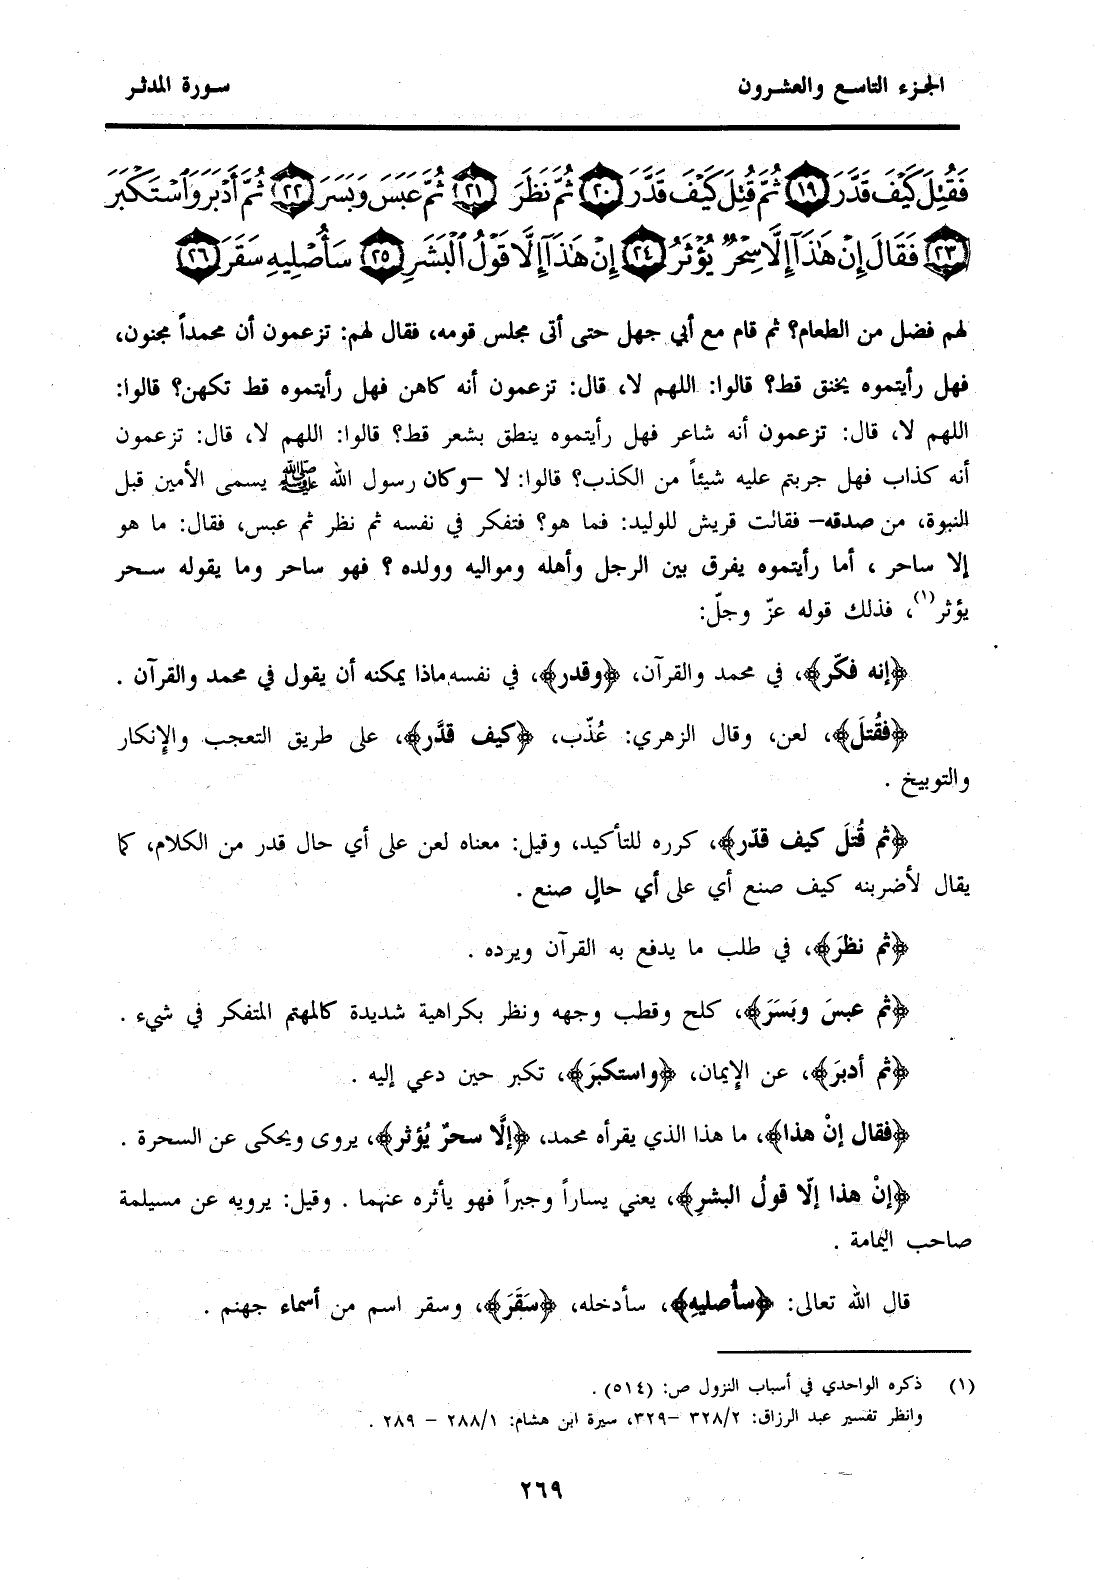 الجزء التاسع والعشرون
سورة المدثر
فَقُتِلَ كَيْفَ قَدَّرَ ١٩ ثُمَّ قُتِلَ كَيْفَ قَدَّرَ ٢٠ ثُمَّ نَظَرَ ٢١ ثُمَّ عَبَسَ وَبَسَرَ ٢٢ ثُمَّ أَدْبَرَ وَٱسْتَكْبَرَ
٢٣ فَقَالَ إِنْ هَٰذَآ إِلَّا سِحْرٌ يُؤْثَرُ ٢٤ إِنْ هَٰذَآ إِلَّا قَوْلُ ٱلْبَشَرِ ٢٥ سَأُصْلِيهِ سَقَرَ ٢٦
لهم فضل من الطعام؟ ثم قام مع أبي جهل حتى أتى مجلس قومه، فقال لهم: تزعمون أن محمداً مجنون،
فهل رأيتموه يخنق قط؟ قالوا: اللهم لا، قال: تزعمون أنه كاهن فهل رأيتموه قط تكهن؟ قالوا:
اللهم لا، قال: تزعمون أنه شاعر فهل رأيتموه ينطق بشعر قط؟ قالوا: اللهم لا، قال: تزعمون
أنه كذاب فهل جربتم عليه شيئاً من الكذب؟ قالوا: لا –وكان رسول الله ﷺ يسمى الأمين قبل
النبوة، من صدقه– فقالت قريش للوليد: فما هو؟ فتفكر في نفسه ثم نظر ثم عبس، فقال: ما هو
إلا ساحر ، أما رأيتموه يفرق بين الرجل وأهله ومواليه وولده ؟ فهو ساحر وما يقوله سحر
يؤثر(١)، فذلك قوله عزّ وجلّ:
﴿إنه فكّر﴾، في محمد والقرآن، ﴿وقدر﴾، في نفسه ماذا يمكنه أن يقول في محمد والقرآن .
﴿فقُتلَ﴾، لعن، وقال الزهري: عُذّب، ﴿كيف قدَّر﴾، على طريق التعجب والإنكار
والتوبيخ .
﴿ثم قُتلَ كيف قدّر﴾، كرره للتأكيد، وقيل: معناه لعن على أي حال قدر من الكلام، كما
يقال لأضربنه كيف صنع أي على أي حالٍ صنع .
﴿ثم نظرَ﴾، في طلب ما يدفع به القرآن ويرده .
﴿ثم عبسَ وبَسَرَ﴾، كلح وقطب وجهه ونظر بكراهية شديدة كالمهتم المتفكر في شيء .
﴿ثم أدبرَ﴾، عن الإيمان، ﴿واستكبرَ﴾، تكبر حين دعي إليه .
﴿فقال إنْ هذا﴾، ما هذا الذي يقرأه محمد، ﴿إلَّا سحرٌ يُؤثر﴾، يروى ويحكى عن السحرة .
﴿إنْ هذا إلّا قولُ البشرِ﴾، يعني يساراً وجبراً فهو يأثره عنهما . وقيل: يرويه عن مسيلمة
صاحب اليمامة .
قال الله تعالى: ﴿سأصليهِ﴾، سأدخله، ﴿سَقَرَ﴾، وسقر اسم من أسماء جهنم .
(١) ذكره الواحدي في أسباب النزول ص: (٥١٤) .
وانظر تفسير عبد الرزاق: ٣٢٨/٢ –٣٢٩، سيرة ابن هشام: ٢٨٨/١ – ٢٨٩ .
٢٦٩